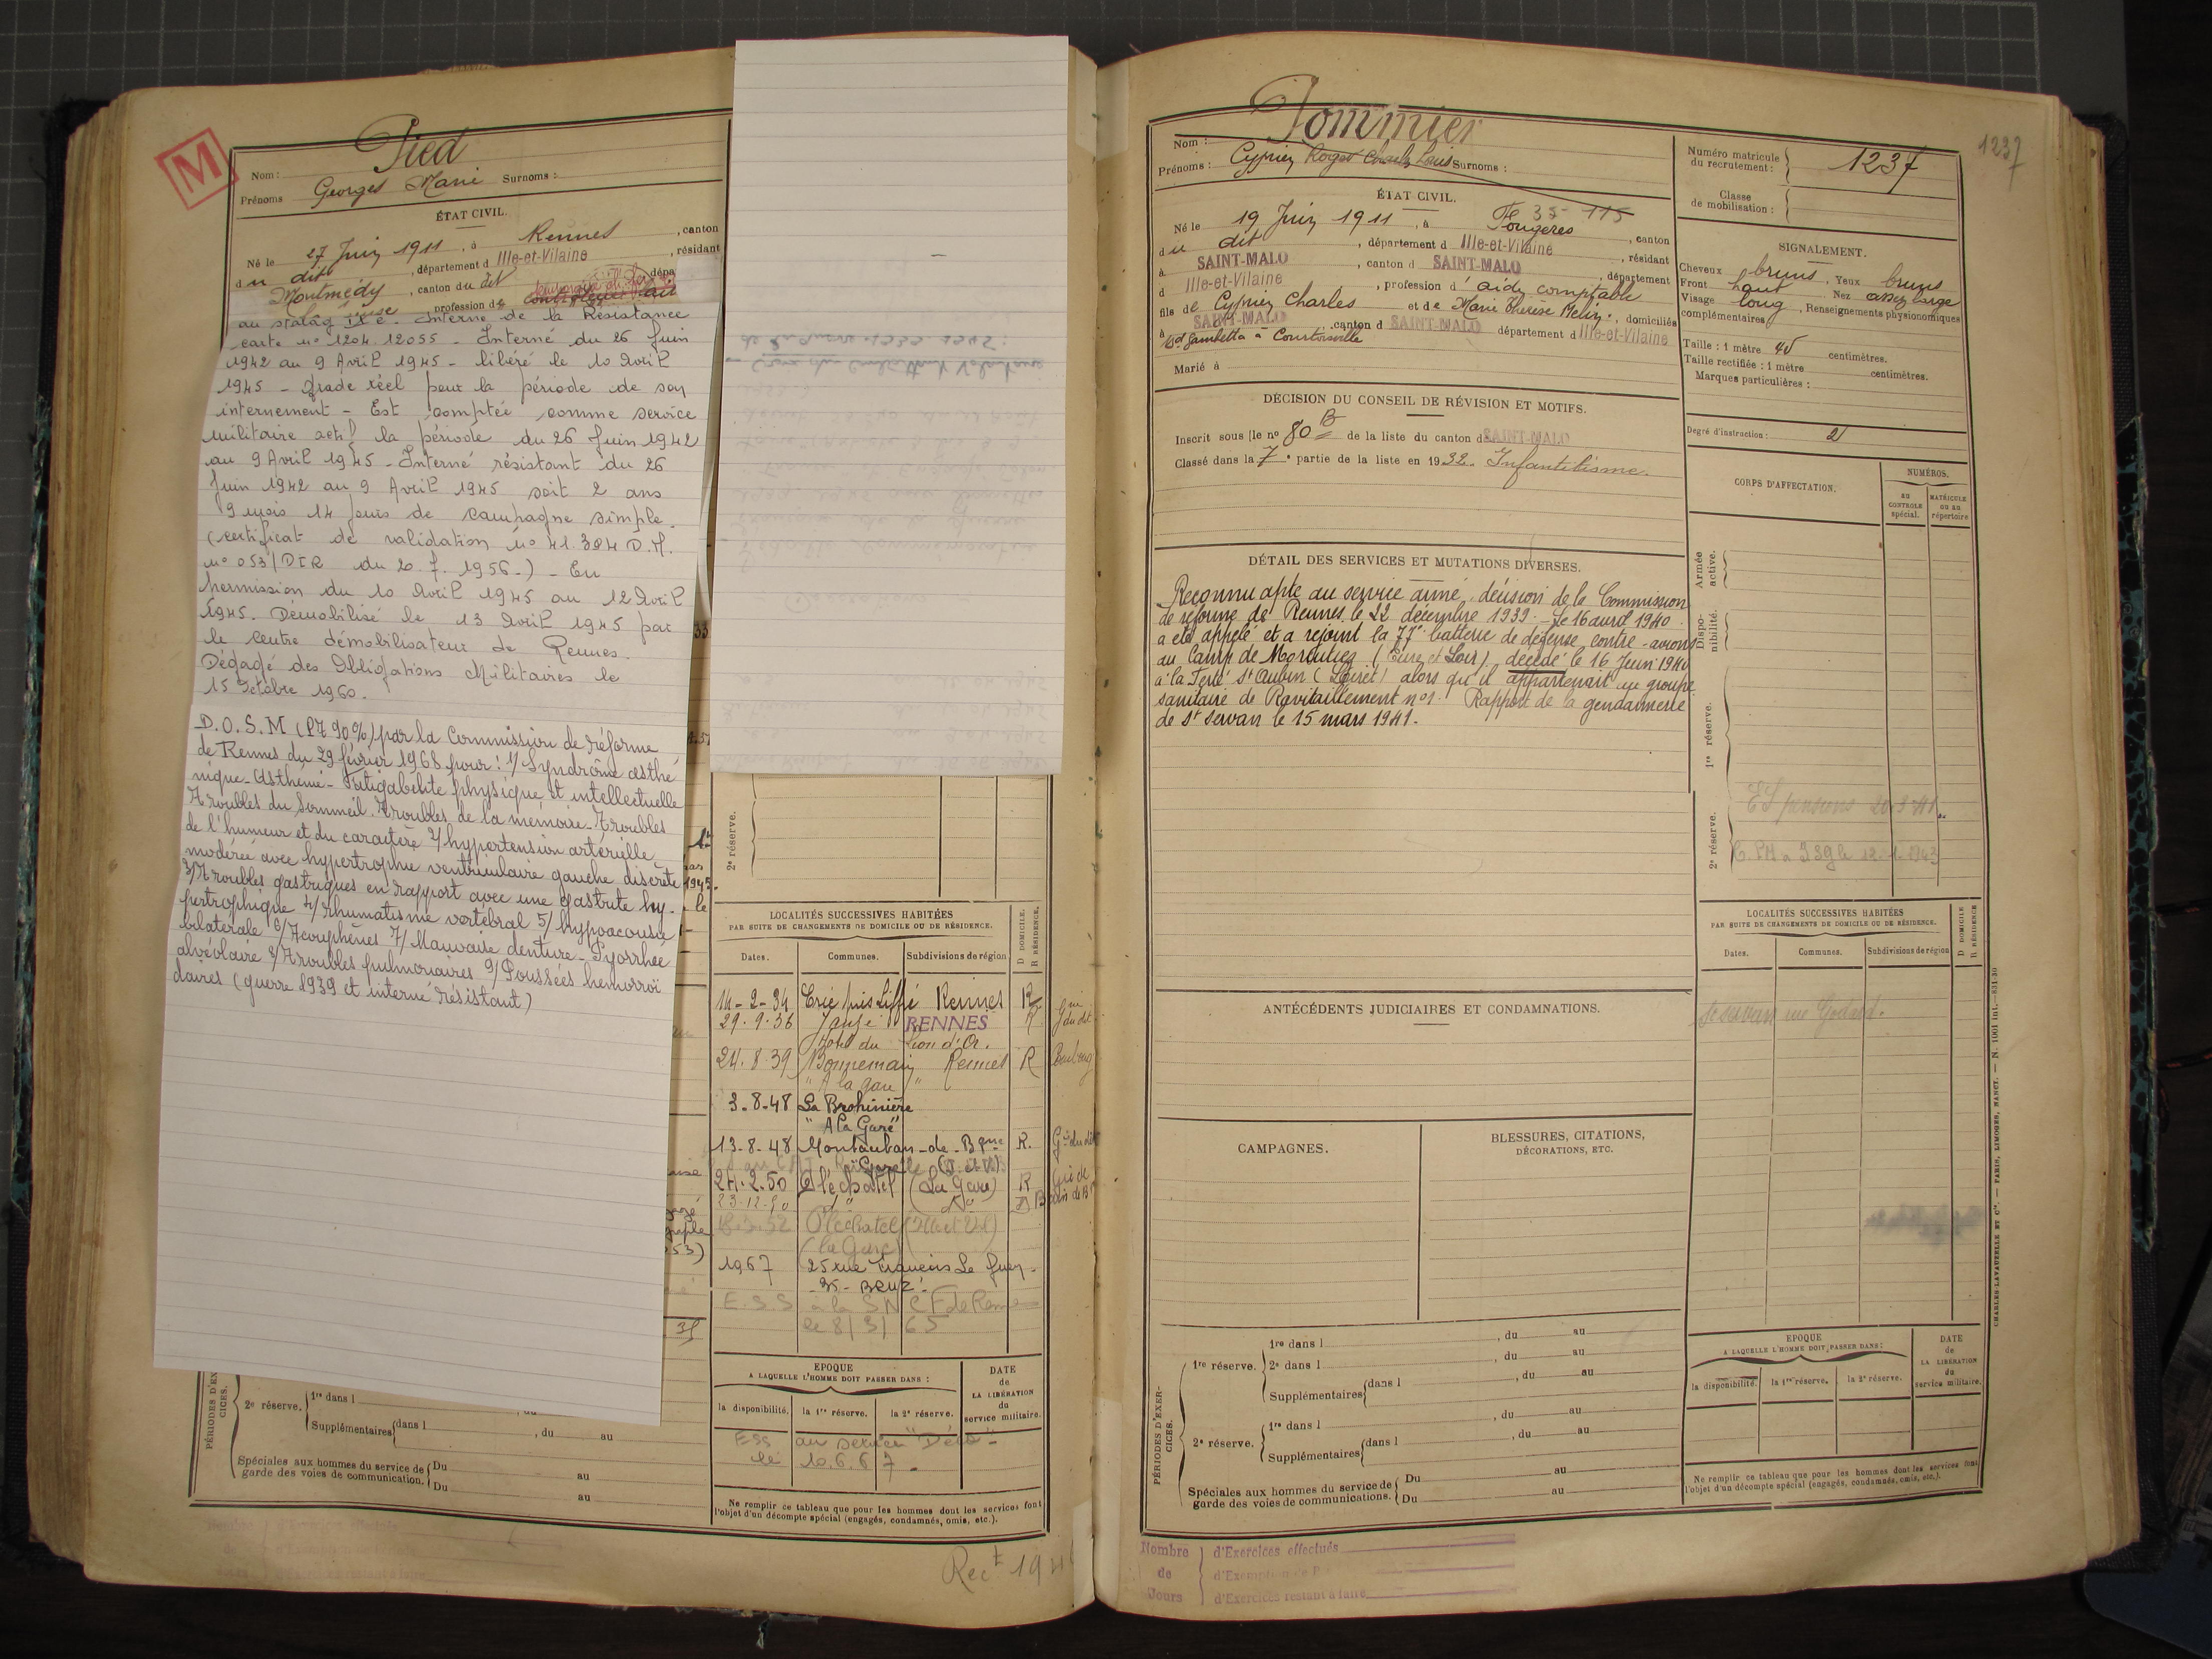 M
Pied
Nom :
Prénoms Georges Marie Surnoms :
ÉTAT CIVIL.
Né le 27 Juin 1911, à Rennes, canton
du dit, département d Ille-et-Vilaine, résidant
Montmédy, canton du dit, dépa
profession de
au stalag IX C. Interné de la Résistance
carte n° 1204.12055 - Interné du 26 Juin
1942 au 9 Avril 1945 - libéré le 10 Avril
1945 - Grade réel pour la période de son
internement - Est comptée comme service
militaire actif la période du 26 Juin 1942
au 9 Avril 1945 - Interné résistant du 26
Juin 1942 au 9 Avril 1945 soit 2 ans
9 mois 14 jours de campagne simple.
(certificat de validation n° 41.384 D.M.
n° 053/DIR du 20.7.1956-) - En
permission du 10 Avril 1945 au 12 Avril
1945. Démobilisé le 13 Avril 1945 par
le centre démobilisateur de Rennes.
Dégagé des Obligations Militaires le
15 Octobre 1960.
D.O.S.M (P7 90%) par la Commission de réforme
de Rennes du 29 février 1968 pour : 1/ Syndrôme asthé
nique - Asthénie - Fatigabilité physique et intellectuelle
Troubles du Sommeil. Troubles de la mémoire - Troubles
de l'humeur et du caractère 2/ hypertension artérielle
modérée avec hypertrophie ventriculaire gauche discrète
3/ Troubles gastriques en rapport avec une gastrite hy-
pertrophique 4/ rhumatisme vertébral 5/ hypoacousie
bilatérale 6/ Acouphènes 7/ Mauvaise denture - Pyorrhée
alvéolaire 8/ Troubles pulmonaires 9/ Poussées hemorroï
daires (guerre 1939 et interné résistant)
2e réserve.
LOCALITÉS SUCCESSIVES HABITÉES
PAR SUITE DE CHANGEMENTS DE DOMICILE OU DE RÉSIDENCE.
D DOMICILE.
R RÉSIDENCE.
Dates. Communes. Subdivisions de région
14-2-34 Ercé puis Liffré Rennes R
29.9.36 Janzé RENNES R
Hotel du Lion d'Or.
24.8.39 Bonnemain Rennes R
"A la gare"
3-8-48 La Brohinière
"A la Gare"
13-8-48 Montauban-de-Bgne R.
24.2.50 Pléchatel (La Gare) R
23-12-50
Pléchatel (Ille et Vil)
(la Gare)
1967 25 rue
35 - BRUZ
E.S.S à la SNCF de Rennes
le 8/3/65
EPOQUE
A LAQUELLE L'HOMME DOIT PASSER DANS :
DATE
de
LA LIBÉRATION
du
service militaire.
la disponibilité. la 1re réserve. la 2e réserve.
ESS au service "Déco" -
le 10.6.67 -
PÉRIODES D'EX
CICES.
2e réserve. 1re dans l
Supplémentaires dans l , du au
Spéciales aux hommes du service de garde des voies de communication. Du au
Du au
Ne remplir ce tableau que pour les hommes dont les services font
l'objet d'un décompte spécial (engagés, condamnés, omis, etc.).
Rect 194
1237
Pommier
Nom :
Prénoms : Cyprien Roger Charles Louis Surnoms :
Numéro matricule
du recrutement : 1237
Classe
de mobilisation :
ÉTAT CIVIL.
Fe 35 115
Né le 19 Juin 1911, à Fougères, canton
du dit, département d Ille-et-Vilaine, résidant
à SAINT-MALO, canton d SAINT-MALO, département
d Ille-et-Vilaine, profession d'aide comptable
fils de Cyprien Charles et de Marie Thérèse Melin, domiciliés
à SAINT-MALO, canton d SAINT-MALO département d Ille-et-Vilaine
Bd Gambetta à Courtoisville
Marié à
SIGNALEMENT.
Cheveux bruns, Yeux bruns
Front haut Nez assez large
Visage long, Renseignements physionomiques
complémentaires
Taille : 1 mètre 45 centimètres.
Taille rectifiée : 1 mètre centimètres.
Marques particulières :
Degré d'instruction : 2
DÉCISION DU CONSEIL DE RÉVISION ET MOTIFS.
Inscrit sous le n° 80 B de la liste du canton d SAINT-MALO
Classé dans la 7e partie de la liste en 1932. Infantilisme.
CORPS D'AFFECTATION.
NUMÉROS.
AU CONTROLE spécial.
MATRICULE ou au répertoire
Armée active.
Disponibilité.
1re réserve.
2e réserve.
ES pensions 20.3.41.
DÉTAIL DES SERVICES ET MUTATIONS DIVERSES.
Reconnu apte au service armé, décision de la Commission
de réforme de Rennes le 22 décembre 1939. - Le 16 avril 1940
a été appelé et a rejoint la 77e batterie de défense contre-avions
au Camp de Morancez (Eure et Loir). décédé le 16 Juin 1940
à la Ferté St Aubin (Loiret) alors qu'il appartenait au groupe
sanitaire de Ravitaillement n°1. Rapport de la gendarmerie
de St Servan le 15 mars 1941.
ANTÉCÉDENTS JUDICIAIRES ET CONDAMNATIONS.
CAMPAGNES.
BLESSURES, CITATIONS,
DÉCORATIONS, ETC.
LOCALITÉS SUCCESSIVES HABITÉES
PAR SUITE DE CHANGEMENTS DE DOMICILE OU DE RÉSIDENCE.
D DOMICILE
R RÉSIDENCE
Dates. Communes. Subdivisions de région
St Servan rue Godard.
PÉRIODES D'EXER-
CICES.
1re réserve. 1re dans l , du au
2e dans l , du au
Supplémentaires dans l , du au
2e réserve. 1re dans l , du au
Supplémentaires dans l , du au
Spéciales aux hommes du service de garde des voies de communications. Du au
Du au
EPOQUE
A LAQUELLE L'HOMME DOIT PASSER DANS :
DATE
de
LA LIBÉRATION
du
service militaire.
la disponibilité. la 1re réserve. la 2e réserve.
Ne remplir ce tableau que pour les hommes dont les services font
l'objet d'un décompte spécial (engagés, condamnés, omis, etc.).
CHARLES-LAVAUZELLE ET Cie. — PARIS, LIMOGES, NANCY. — N. 1001 int.—931-30
Nombre de Jours
d'Exercices effectués
d'Exemption de
d'Exercices restant à faire